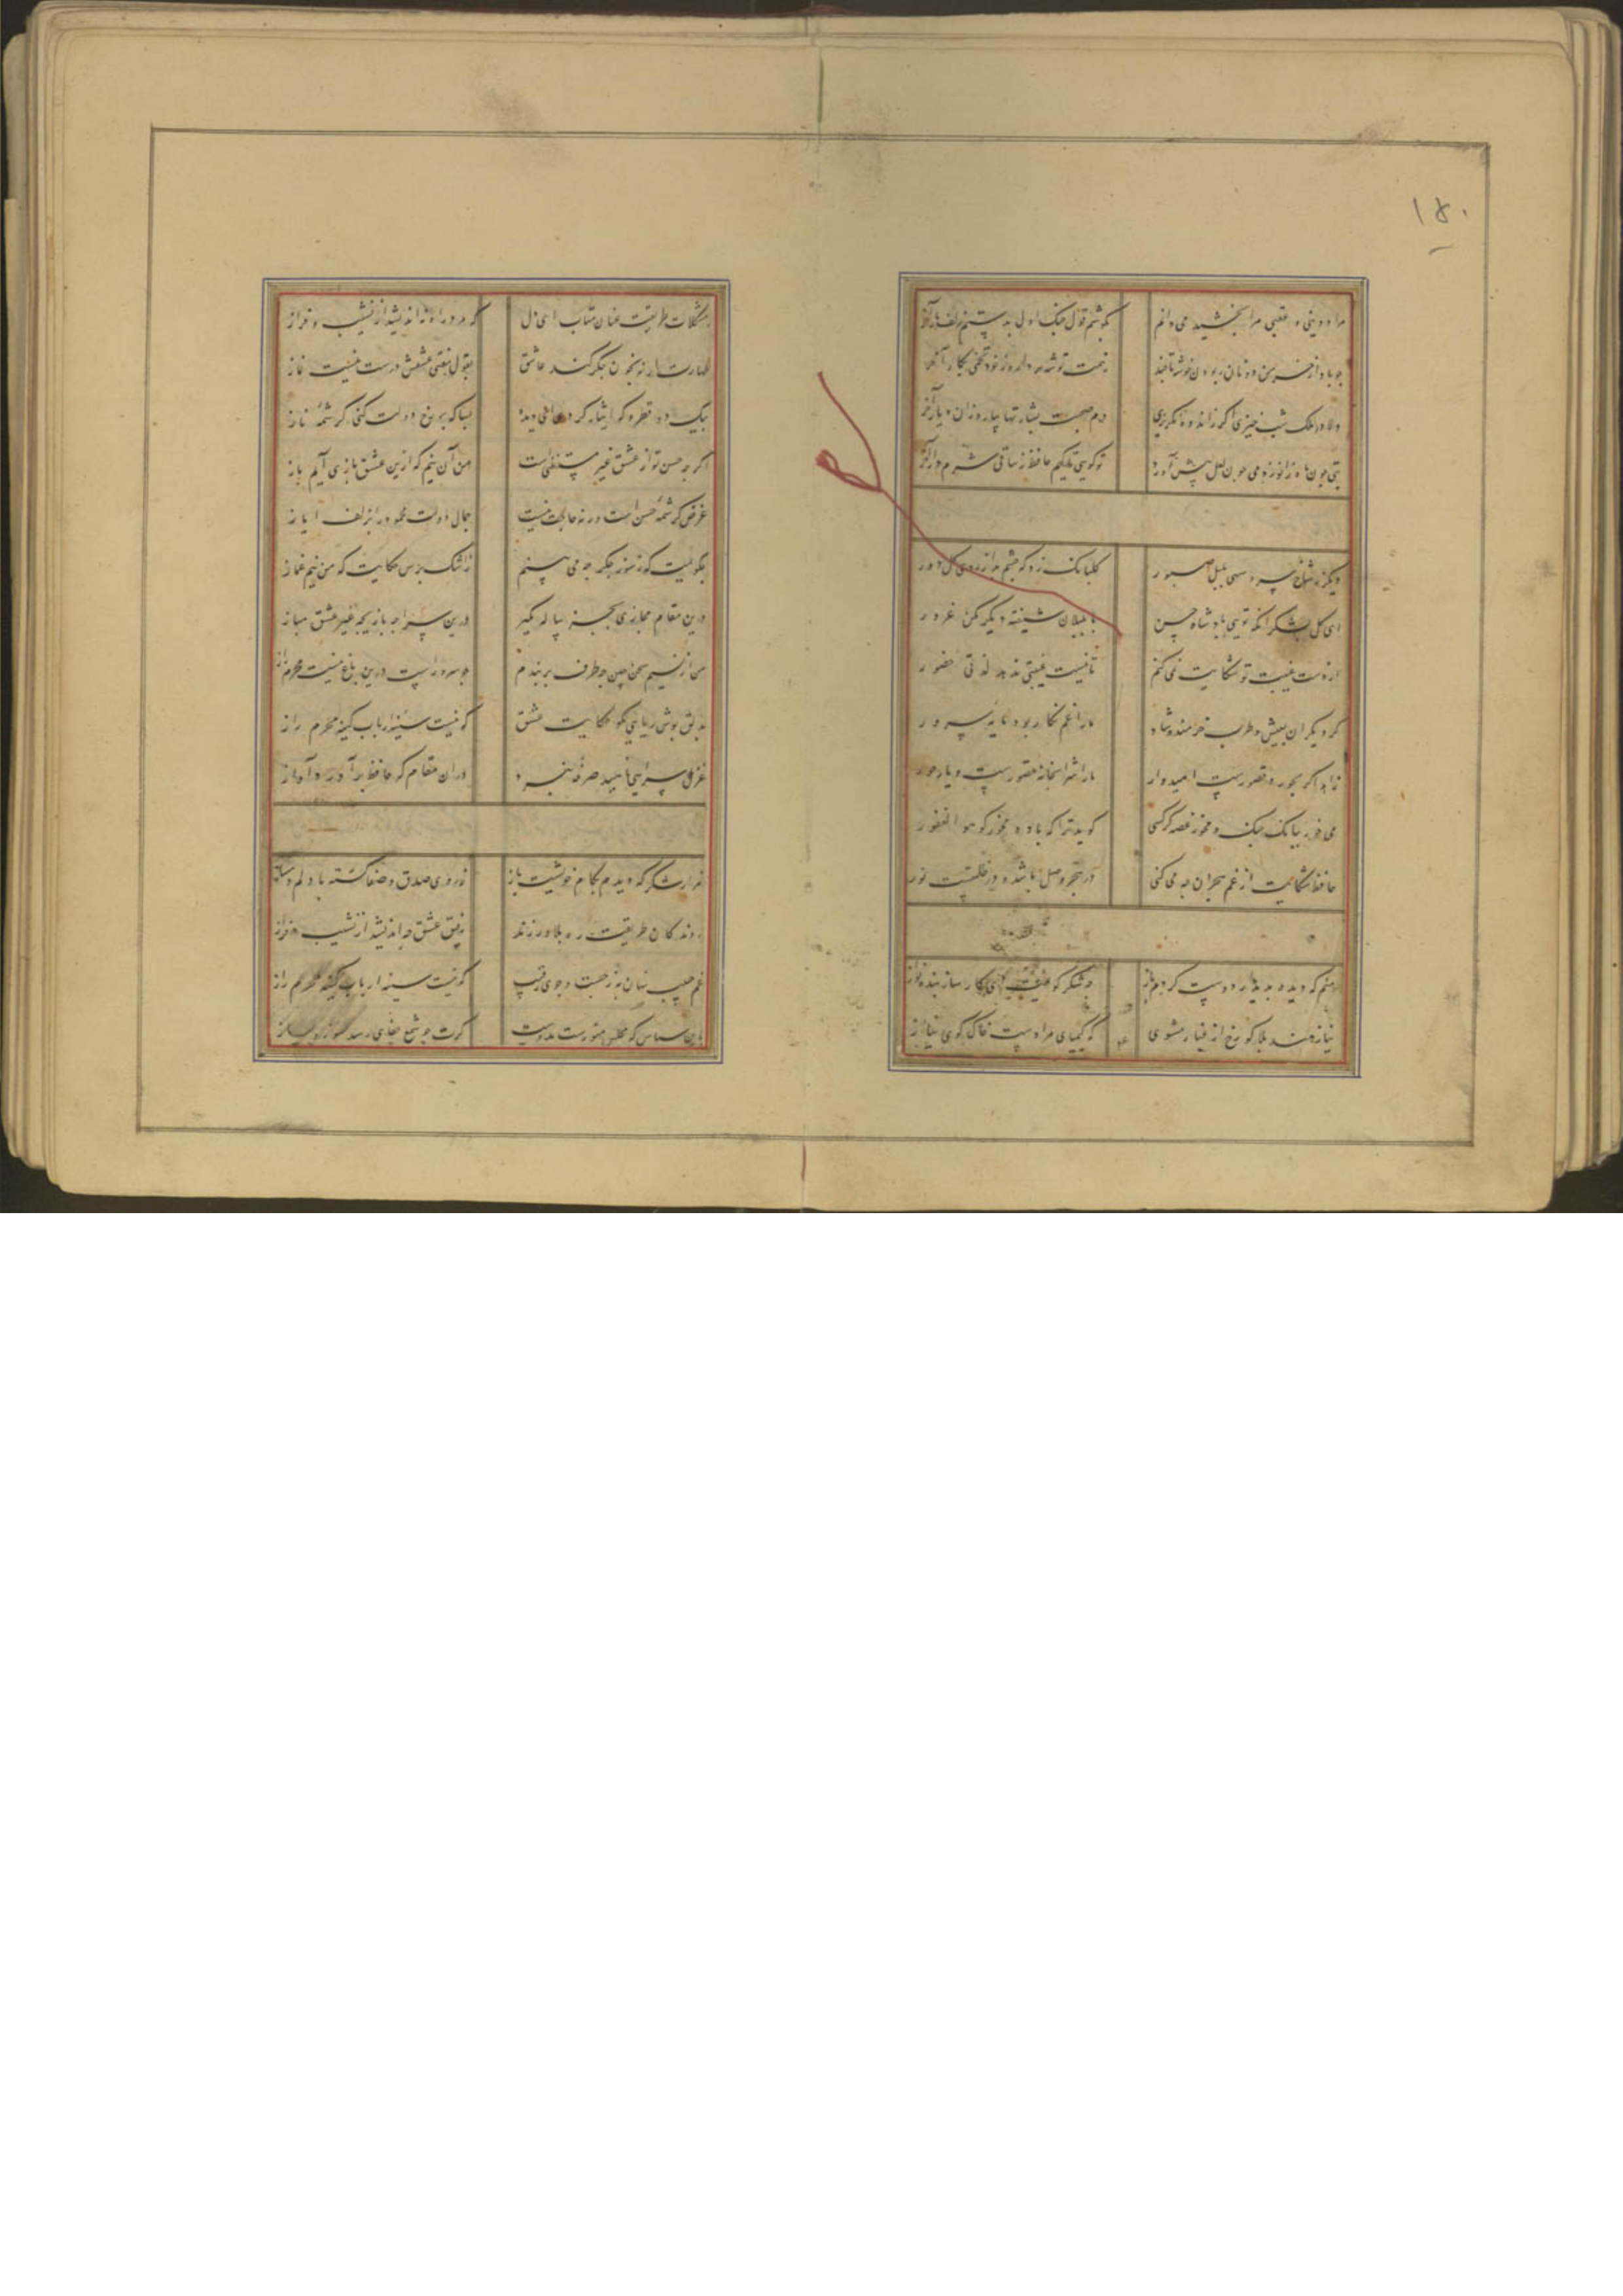 ۱۵۰
مرا در دنیی و عقبی مرا بخشید می دانم بگوشم قول چنک اول بدستم زلف یار آخر
چو باد از خرمن دونان ربودن خوشه تا چند ز همت توشه بردار و خود تخمی بکار آخر
دلا در ملک شب خیزی اگر ز اندوه نگریزی دم صبحت بشارتها بیارد زان دیار آخر
بتی چون ماه زانو زد می چون لعل پیش آورد تو گویی تایبم حافظ ز ساقی شرم دار آخر
دیگر ز شاخ سرو سهی بلبل صبور گلبانک زد که چشم بد از روی گل دور
ای گل بشکر آنکه تویی پادشاه حسن با بلبلان شیفته دیگر مکن غرور
از دست غیبت تو شکایت نمی کنم تا نیست غیبتی ندهد لذتی حضور
گر دیگران بعیش و طرب خرمند و شاد ما را غم نگار بود مایه سرور
زاهد اگر بحور و قصورست امیدوار ما را شرابخانه قصورست و یار حور
می خور ببانک چنک و مخور غصه گر کسی گوید ترا که باده مخور گو هو الغفور
حافظ شکایت از غم هجران چه می کنی در هجر وصل باشد و در ظلمتست نور
منم که دیده بدیدار دوست کردم باز چه شکر گویمت ای کارساز بنده نواز
نیازمند بلا گو رخ از غبار مشوی که کیمیای مرادست خاک کوی نیاز
ز مشکلات طریقت عنان متاب ای دل که مرد راه نه اندیشد از نشیب و فراز
طهارت ار نه بخون جگر کند عاشق بقول مفتی عشقش درست نیست نماز
بیک دو قطره که ایثار کردی دیده بسا که بر رخ دولت کنی کرشمه ناز
اگر چه حسن تو از عشق غیر مستغنی است من آن نیم که ازین عشق بازی آیم باز
غرض کرشمه حسن است ورنه حاجت نیست جمال دولت محمود را بزلف ایاز
چه گویمت که ز سوز جگر چه می بینم ز اشک پرس حکایت که من نیم غماز
درین مقام مجازی بجز پیاله مگیر درین سراچه بازیچه غیر عشق مباز
من از نسیم سخن چین چه طرف بربندم چو سرو راست درین باغ نیست محرم راز
بدلق پوش ریایی مگو حکایت عشق که نیست سینه ارباب کینه محرم راز
غزل سرایی ناهید صرفه نبرد دران مقام که حافظ برآورد آواز
هزار شکر که دیدم بکام خویشت باز ز روی صدق و صفا گشته با دلم دمساز
روندگان طریقت ره بلا ورزند رفیق عشق چه اندیشد از نشیب و فراز
غم حبیب نهان به ز جست و جوی رقیب که نیست سینه ارباب کینه محرم راز
بدین سپاس که مجلس منورست بدوست گرت چو شمع جفای رسد بسوز و بساز